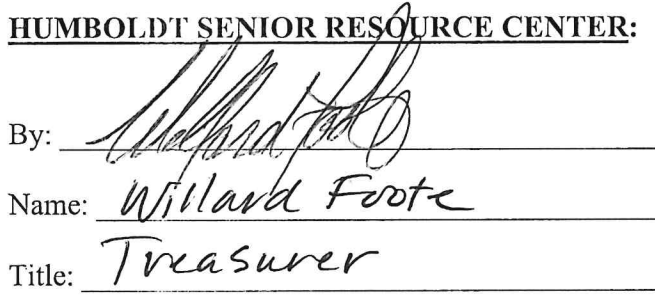 HUMBOLDT SENIOR RESOURCE CENTER:
By: Willard Foote
Name: Willard Foote
Title: Treasurer